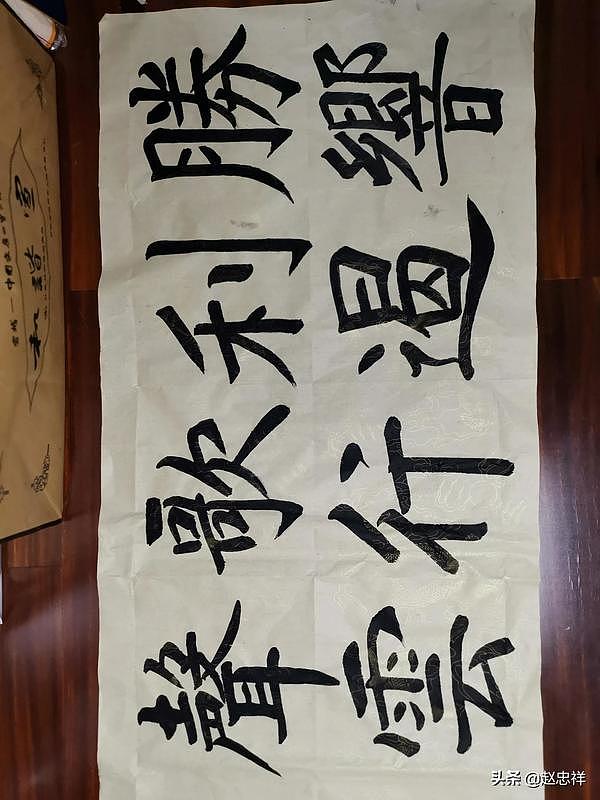 勝利歌聲
響遏行雲
头条 @赵忠祥